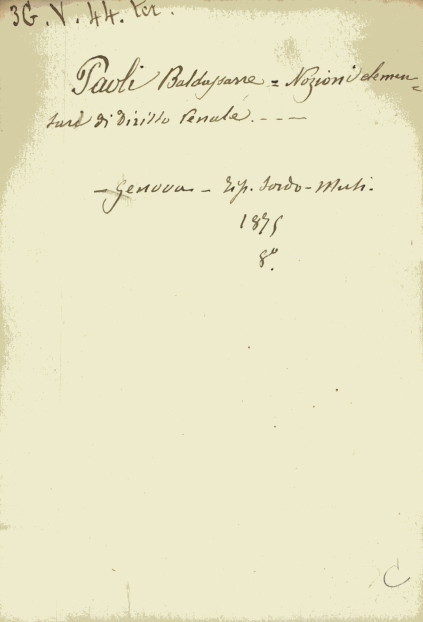 3G. V. 44. ter.
Paoli Baldassarre = Nozioni elemen=
tari di Diritto Penale. - - -
- Genova - Tip. Sordo-Muti.
1875
8º.
C